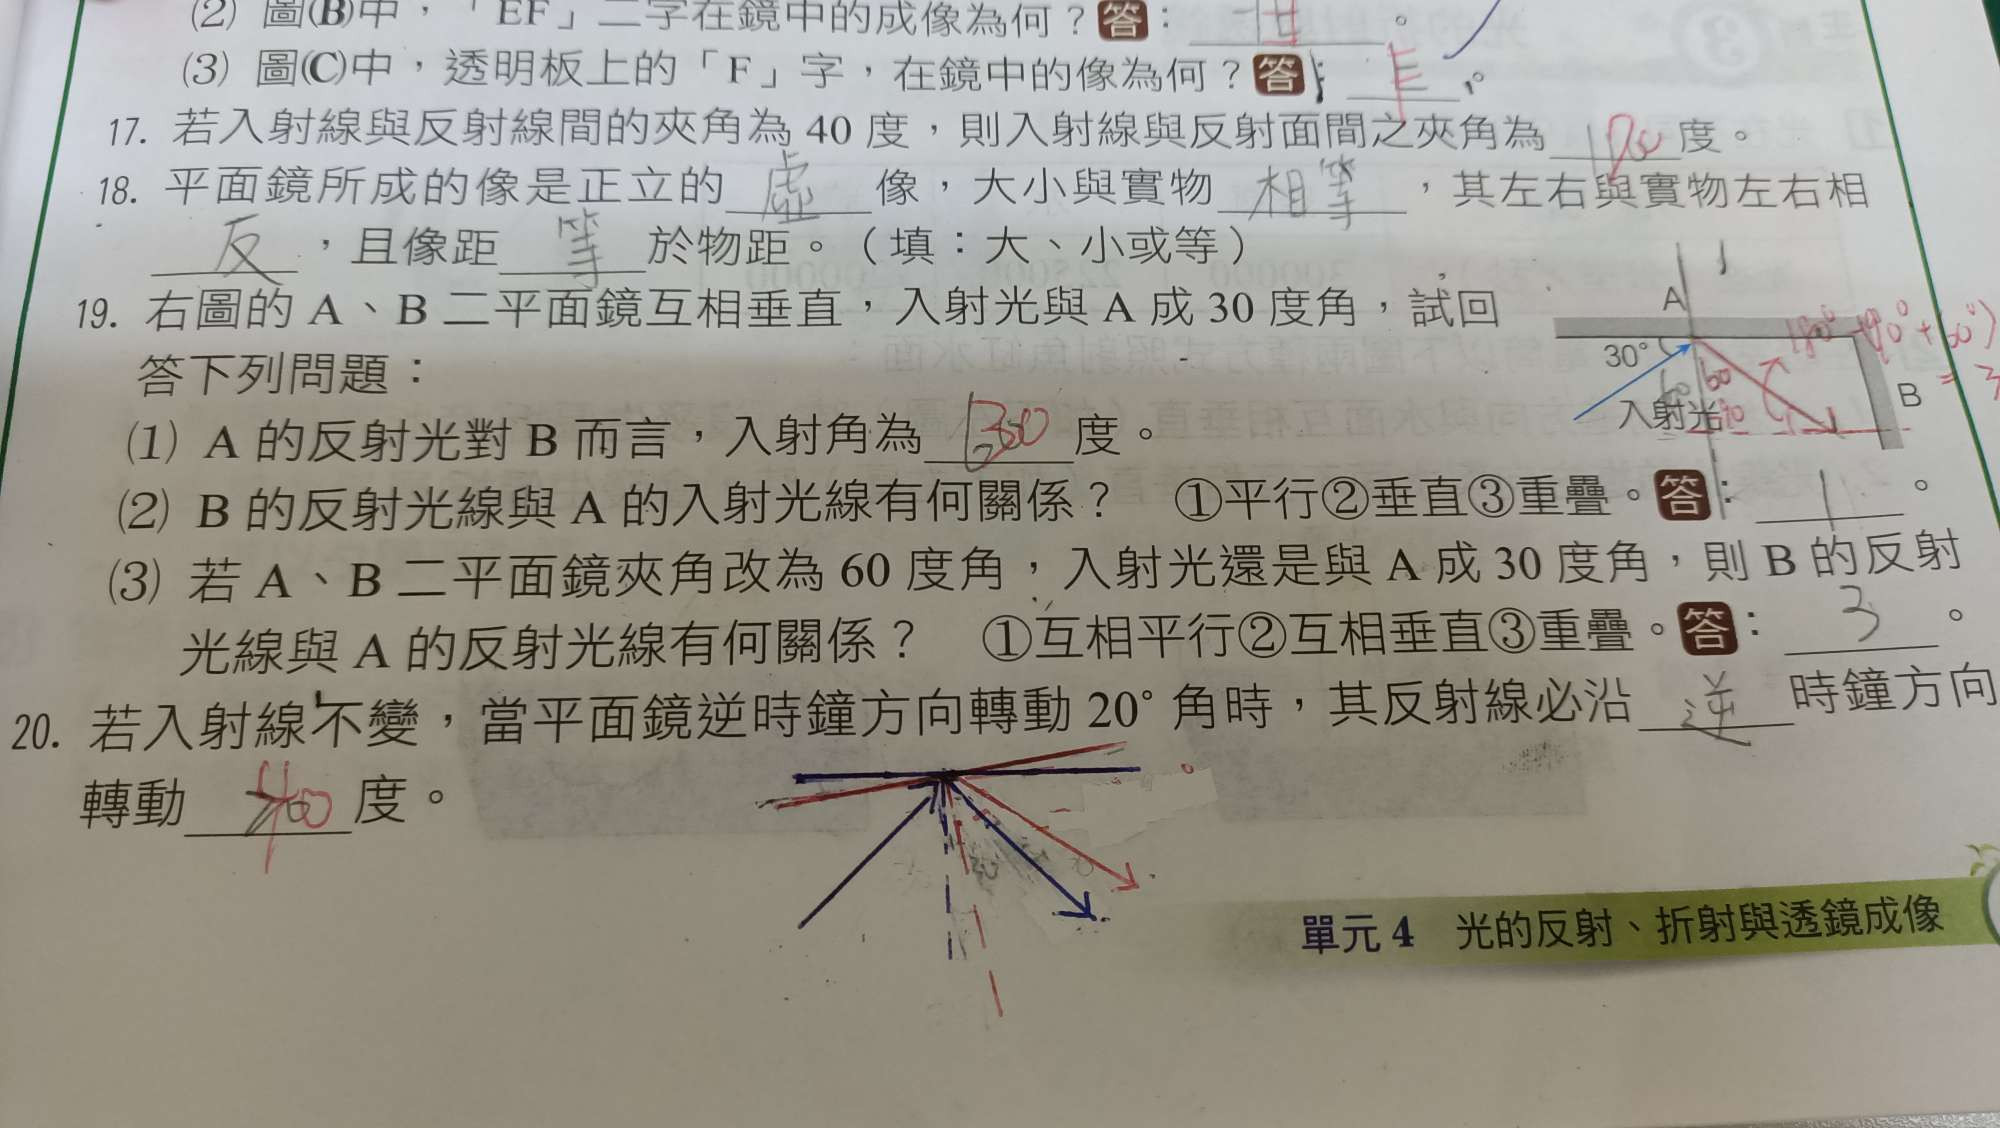 (2) 圖(B)中，「EF」二字在鏡中的成像為何？答：
(3) 圖(C)中，透明板上的「F」字，在鏡中的像為何？答：
17. 若入射線與反射線間的夾角為 40 度，則入射線與反射面間之夾角為 度。
18. 平面鏡所成的像是正立的 虛 像，大小與實物 相等 ，其左右與實物左右相
反 ，且像距 等 於物距。（填：大、小或等）
19. 右圖的 A、B 二平面鏡互相垂直，入射光與 A 成 30 度角，試回
答下列問題：
A
30°
60
60
入射光
B
(1) A 的反射光對 B 而言，入射角為 度。
(2) B 的反射光線與 A 的入射光線有何關係？ ①平行②垂直③重疊。答： 1 。
(3) 若 A、B 二平面鏡夾角改為 60 度角，入射光還是與 A 成 30 度角，則 B 的反射
光線與 A 的反射光線有何關係？ ①互相平行②互相垂直③重疊。答： 3 。
20. 若入射線不變，當平面鏡逆時鐘方向轉動 20° 角時，其反射線必沿 逆 時鐘方向
轉動 40 度。
單元 4 光的反射、折射與透鏡成像